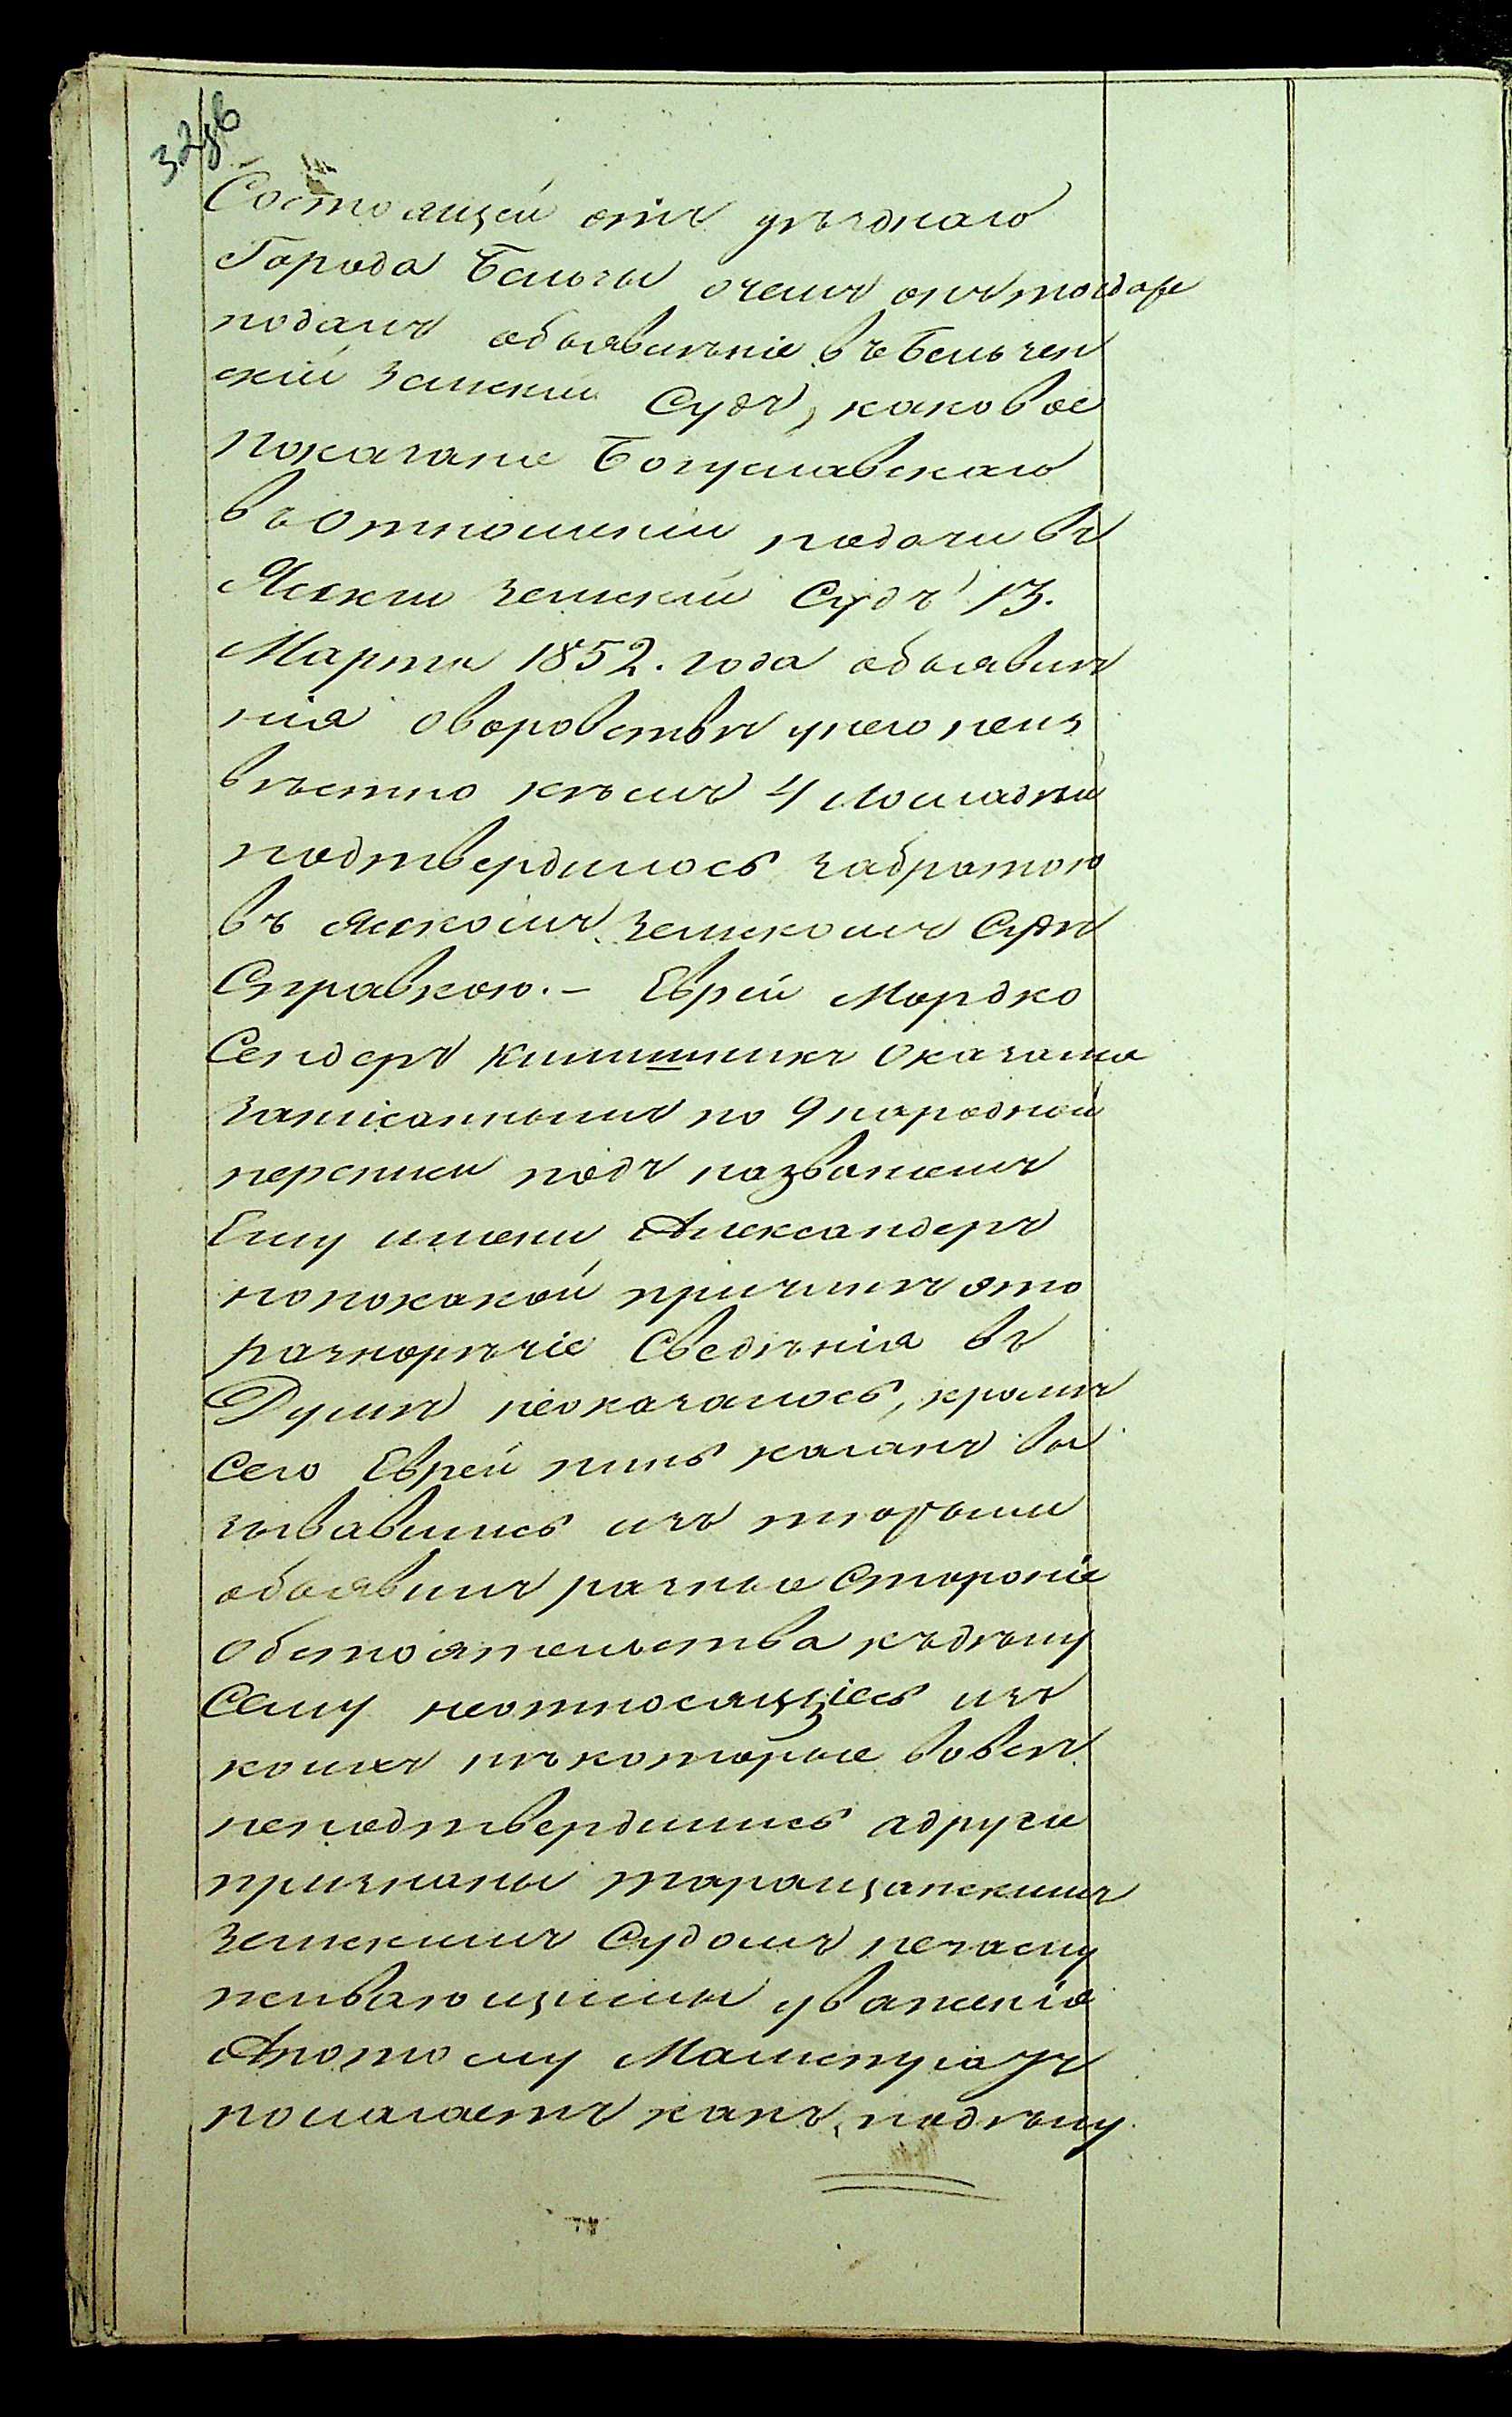 32об
Состоящей отъ уѣзднаго
Города Бельчи очемъ онъ тогдаже
подалъ объявленіе въ Бельчен
скій Земскій Судъ, каковое
показаніе Богуславскаго
въ Отношеніи подачи въ
Ясскій Земскій Судъ 13.
Марта 1852. года объявле
нія оворовствѣ унего неиз
вѣстно кѣмъ 4 лошадей
подтвердилось забратою
въ Ясскомъ Земскомъ Судѣ
Справкою. – Еврей Мордко
Сендеръ Кишишникъ Оказался
записаннымъ по 9 народной
переписи подъ названіемъ
Ему имени Александеръ
нопокакой причинѣ это
разнорѣчіе Сведѣнія въ
Думѣ неоказалось, кромѣ
Сего Еврей пинь каганъ вы
зывавшись изъ тюрьмы
объявилъ разные Стороніе
Обстоятельства къдѣлу
Сему неотносящіесь изъ
коихъ нѣкоторые вовсе
неподтвердились адругіе
признаны таращанскимъ
Земскимъ Судомъ незаслу
живающими уваженія
Апотому Магистратъ
полагаетъ какъ подѣлу